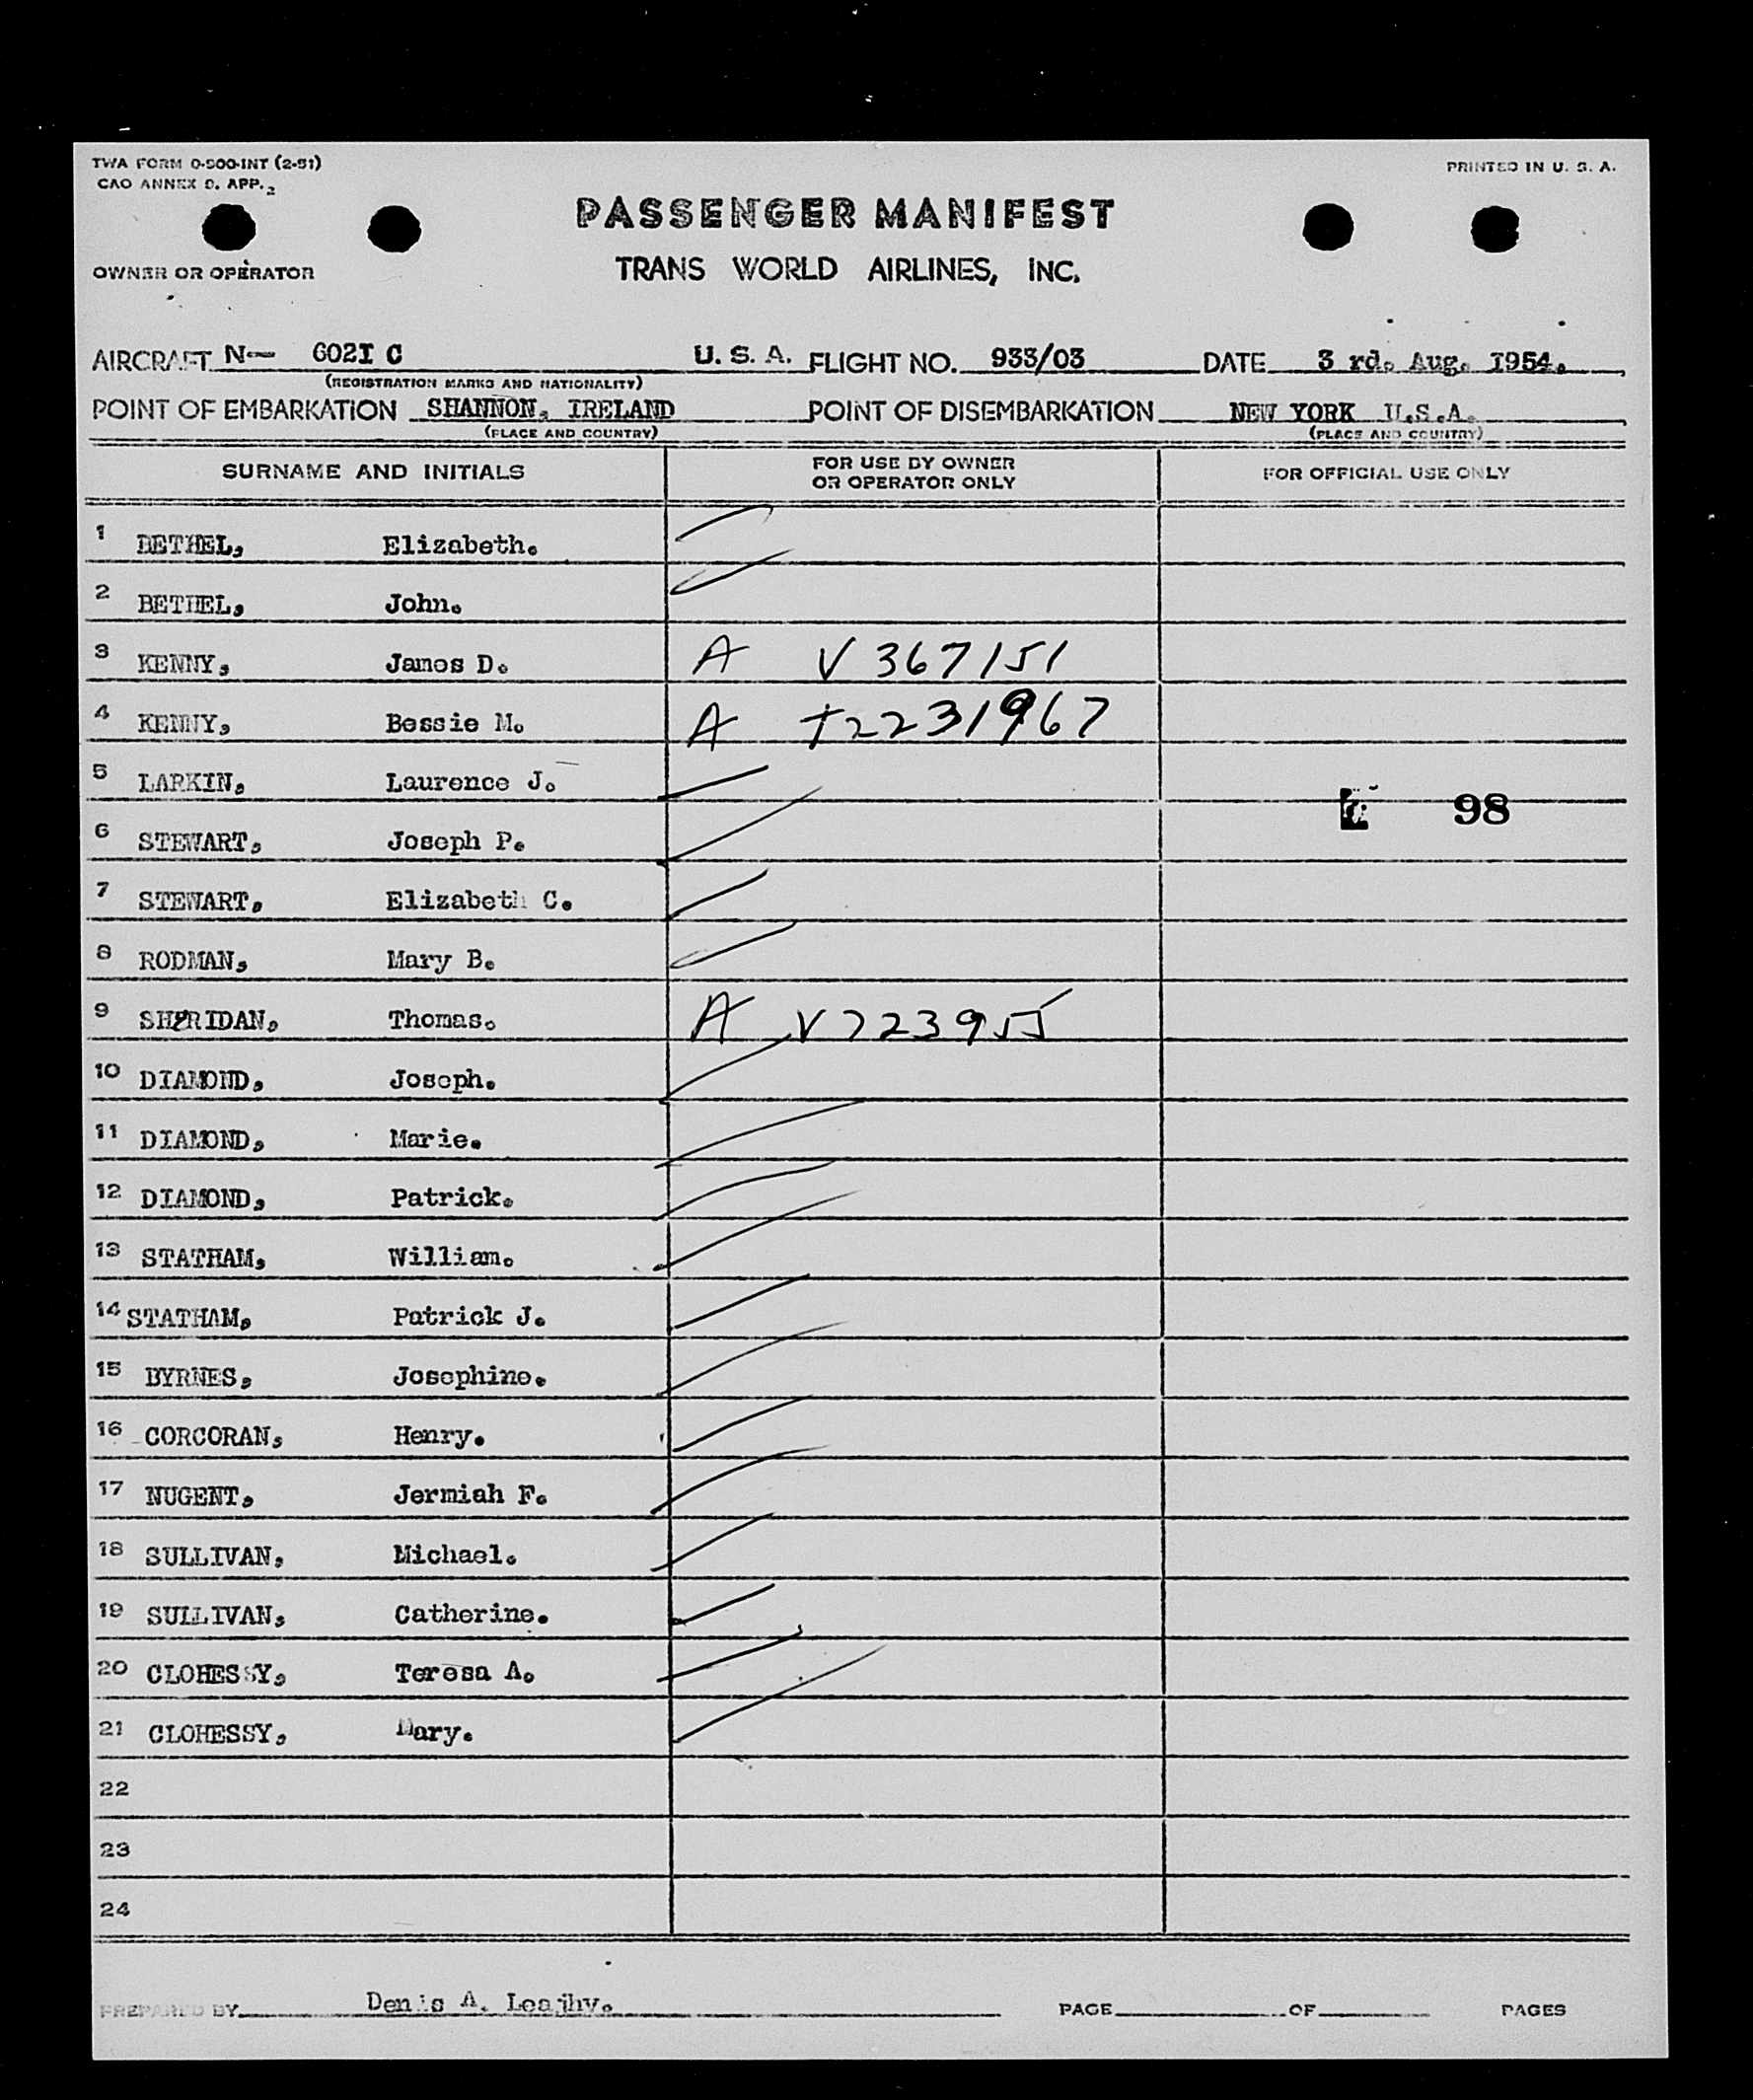 TWA FORM O-900-INT (2-51)
CAO ANNEX 9. APP. 2
PRINTED IN U. S. A.
PASSENGER MANIFEST
OWNER OR OPERATOR
TRANS WORLD AIRLINES, INC.
AIRCRAFT N— 602I C U. S. A. FLIGHT NO. 933/03 DATE 3 rd. Aug. I954.
(REGISTRATION MARKS AND NATIONALITY)
POINT OF EMBARKATION SHANNON, IRELAND POINT OF DISEMBARKATION NEW YORK U.S.A.
(PLACE AND COUNTRY) (PLACE AND COUNTRY)
SURNAME AND INITIALS FOR USE BY OWNER OR OPERATOR ONLY FOR OFFICIAL USE ONLY
1 BETHEL, Elizabeth.
2 BETHEL, John.
3 KENNY, James D. A V 367151
4 KENNY, Bessie M. A T2231967
5 LARKIN, Laurence J.
98
6 STEWART, Joseph P.
7 STEWART, Elizabeth C.
8 RODMAN, Mary B.
9 SHERIDAN, Thomas. A V723955
10 DIAMOND, Joseph.
11 DIAMOND, Marie.
12 DIAMOND, Patrick.
13 STATHAM, William.
14 STATHAM, Patrick J.
15 BYRNES, Josephine.
16 CORCORAN, Henry.
17 NUGENT, Jermiah F.
18 SULLIVAN, Michael.
19 SULLIVAN, Catherine.
20 CLOHESSY, Teresa A.
21 CLOHESSY, Mary.
22
23
24
PREPARED BY Denis A. PAGE OF PAGES